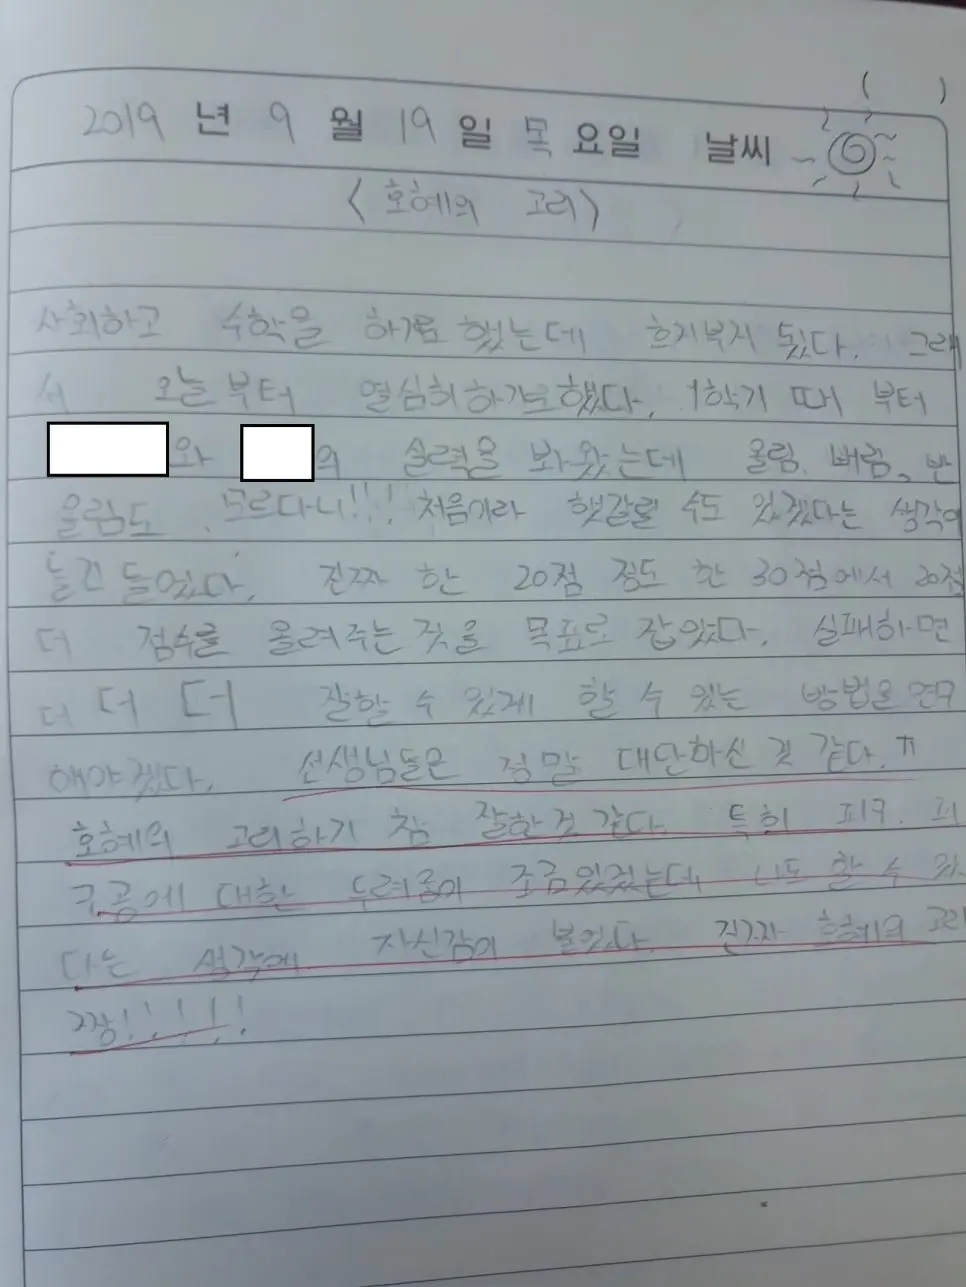 ( )
2019 년 9 월 19 일 목 요일 날씨
〈 호혜의 고리 〉
사회하고 수학을 하기로 했는데 흐지부지 됬다. 그래
서 오늘부터 열심히하기로했다. 1학기 때 부터
와 의 실력을 봐왔는데 올림, 버림, 반
올림도 모르다니!!! 처음이라 햇갈릴 수도 있겠다는 생각이
들긴 들었다. 진짜 한 20점 정도 한 30점에서 20점
더 점수를 올려주는 것을 목표로 잡았다. 실패하면
더 더 더 잘할 수 있게 할 수 있는 방법을 연구
해야겠다. 선생님들은 정말 대단하신 것 같다. ㅠ
호혜의 고리하기 참 잘한것 같다. 특히 피구. 피
구공에 대한 두려움이 조금있었는데 나도 할 수 있
다는 생각에 자신감이 붙었다. 진짜 호혜의 고리
짱!!!!!